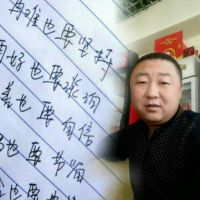 再难也要坚持
再好也要淡泊
差也要自信
也要节省
也要